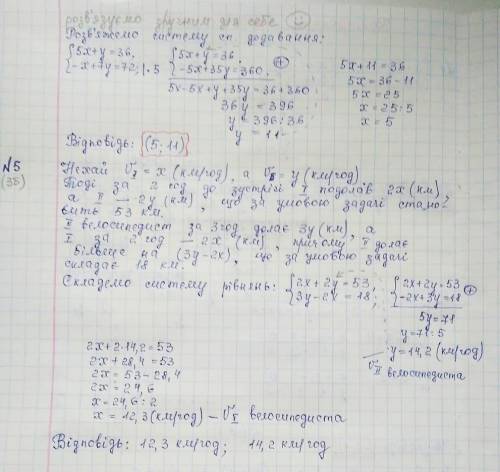 розв'язуємо зручним для себе
Розв'яжемо систему сп. додавання:
{5x+y=36,
-x+7y=72; |·5
{5x+y=36,
-5x+35y=360. ⊕
5x-5x+y+35y=36+360
36y=396
y=396:36
y=11
5x+11=36
5x=36-11
5x=25
x=25:5
x=5
Відповідь: (5; 11)
№5
(3б)
Нехай V_I=x (км/год), а V_II=y (км/год)
Тоді за 2 год до зустрічі I подолав 2x (км),
а II — 2y (км), що за умовою задачі стано-
вить 53 км.
II велосипедист за 3 год долає 3y (км), а
I за 2 год — 2x (км), причому II долає
більше на (3y-2x), що за умовою задачі
складає 18 км.
Складемо систему рівнянь: {2x+2y=53,
3y-2x=18;
{2x+2y=53
-2x+3y=18 ⊕
5y=71
y=71:5
y=14,2 (км/год)
V_II велосипедиста
2x+2·14,2=53
2x+28,4=53
2x=53-28,4
2x=24,6
x=24,6:2
x=12,3 (км/год) — V_I велосипедиста
Відповідь: 12,3 км/год; 14,2 км/год